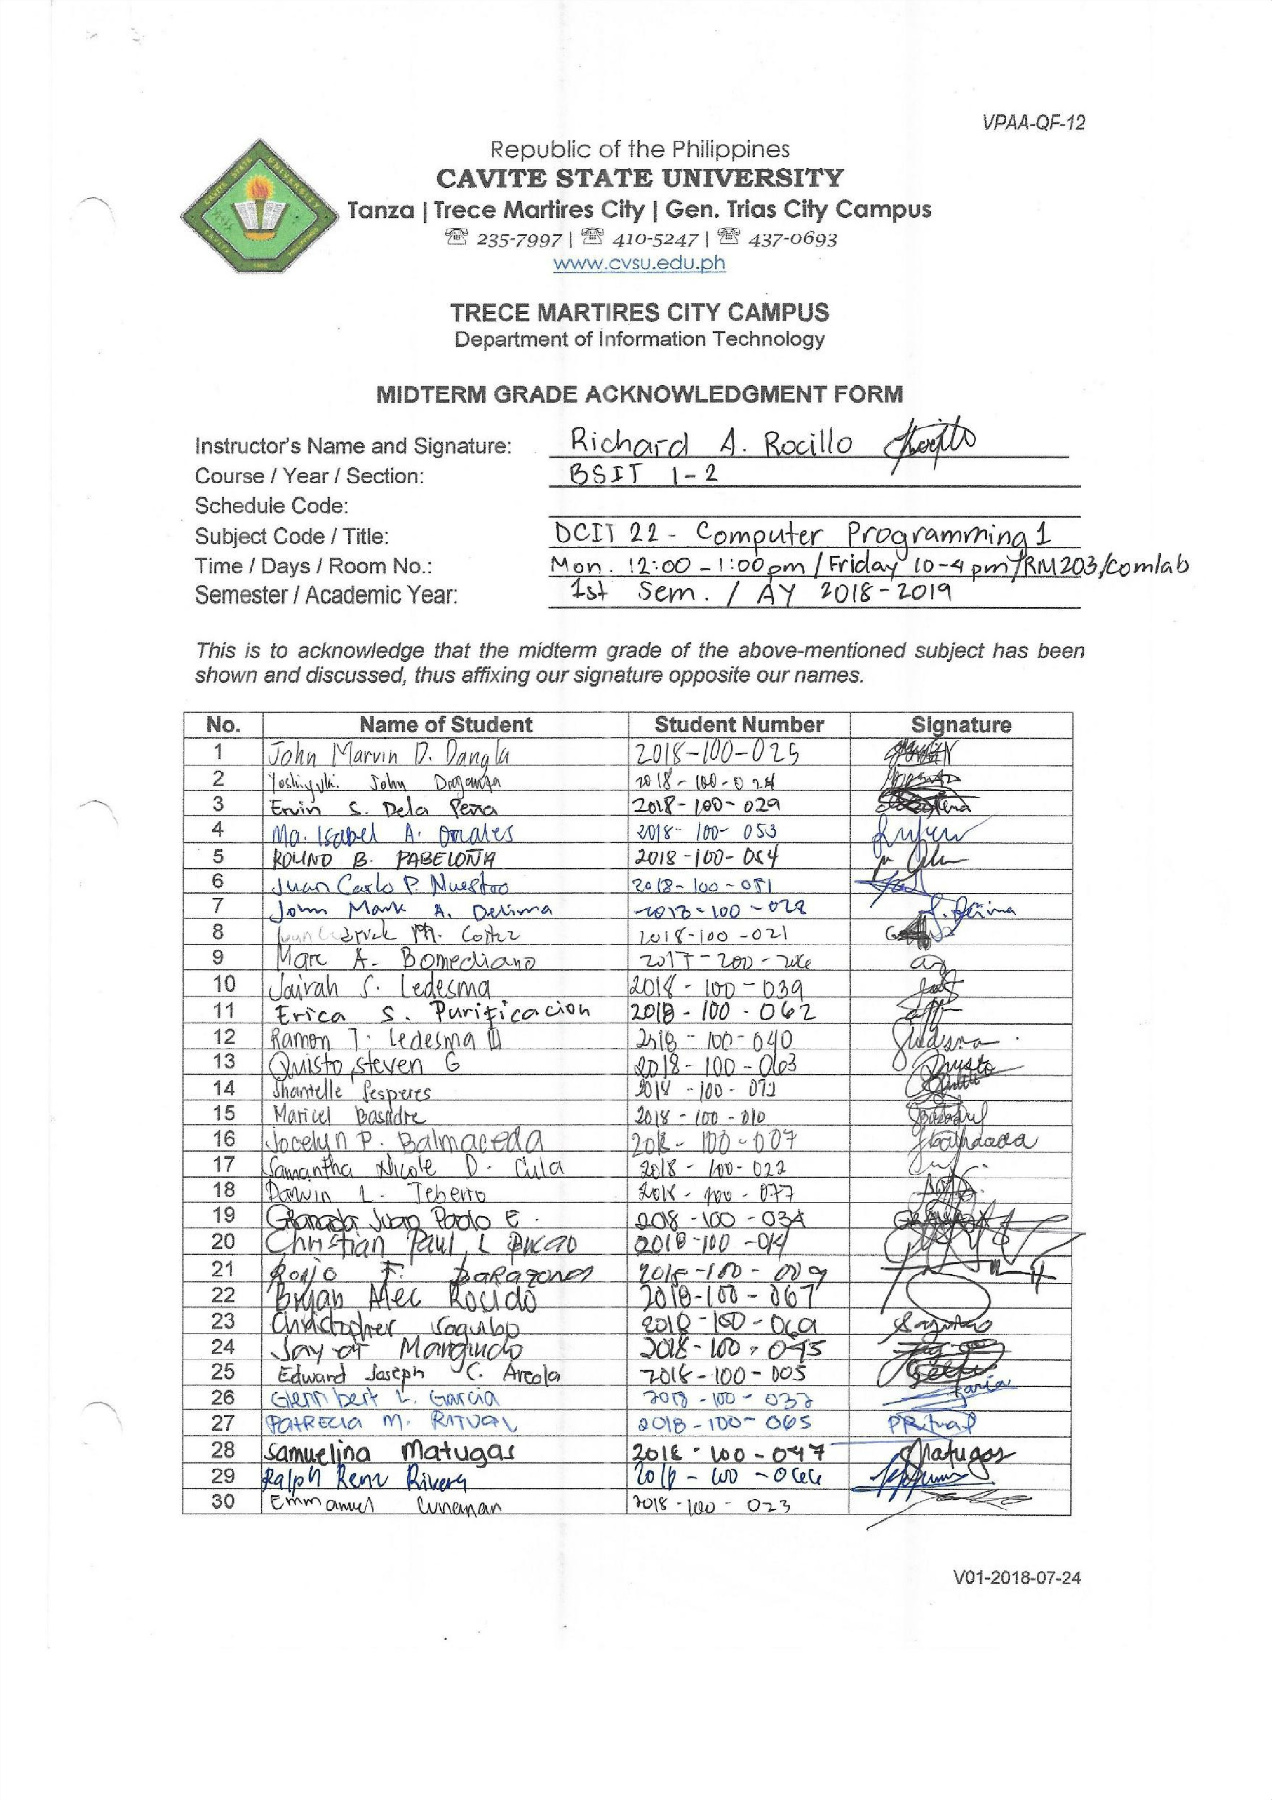 VPAA-QF-12
Republic of the Philippines
CAVITE STATE UNIVERSITY
Tanza | Trece Martires City | Gen. Trias City Campus
☏ 235-7997 | ☏ 410-5247 | ☏ 437-0693
www.cvsu.edu.ph
TRECE MARTIRES CITY CAMPUS
Department of Information Technology
MIDTERM GRADE ACKNOWLEDGMENT FORM
Instructor's Name and Signature: Richard A. Rocillo
Course / Year / Section: BSIT 1-2
Schedule Code:
Subject Code / Title: DCIT 22 - Computer Programming 1
Time / Days / Room No.: Mon. 12:00 - 1:00pm / Friday 10-4 pm / RM203/comlab
Semester / Academic Year: 1st Sem. / AY 2018-2019
This is to acknowledge that the midterm grade of the above-mentioned subject has been
shown and discussed, thus affixing our signature opposite our names.
No. Name of Student Student Number Signature
1 John Marvin D. Dangla 2018-100-025
2 John 2018-100-024
3 Ervin S. Dela Peña 2018-100-029
4 Ma. Isabel A. Ornales 2018-100-053
5 ROLIND B. PABELOÑA 2018-100-054
6 Juan Carlo P. Nuestro 2018-100-051
7 John Mark A. Delima 2018-100-028
8 M. Cortez 2018-100-021
9 Marc A. Bomediano
10 Jairah S. Ledesma 2018-100-039
11 Erica S. Purificacion 2018-100-062
12 Ramon T. Ledesma III 2018-100-040
13 Quisto, Steven G 2018-100-063
14 Shantelle 2018-100-072
15 Maricel Basadre 2018-100-010
16 Jocelyn P. Balmaceda 2018-100-007
17 Samantha Nicole D. Cula 2018-100-022
18 Darwin L. Teberio 2018-100-077
19 Granada Juan Paolo E. 2018-100-034
20 Christian Paul L 2018-100-014
21 F. 2018-100-009
22 Bryan Alec Rocido 2018-100-067
23 Christopher Saguibo 2018-100-069
24 Jay ar 2018-100-045
25 Edward Joseph C. Arcola 2018-100-005
26 Glennbert L. Garcia 2018-100-032 Garcia
27 PATRECIA M. RITUAL 2018-100-065 PRitual
28 Samuelina Matugas 2018-100-047 Matugas
29 Ralph Rene Rivera
30 Emmanuel Cunanan 2018-100-023
V01-2018-07-24